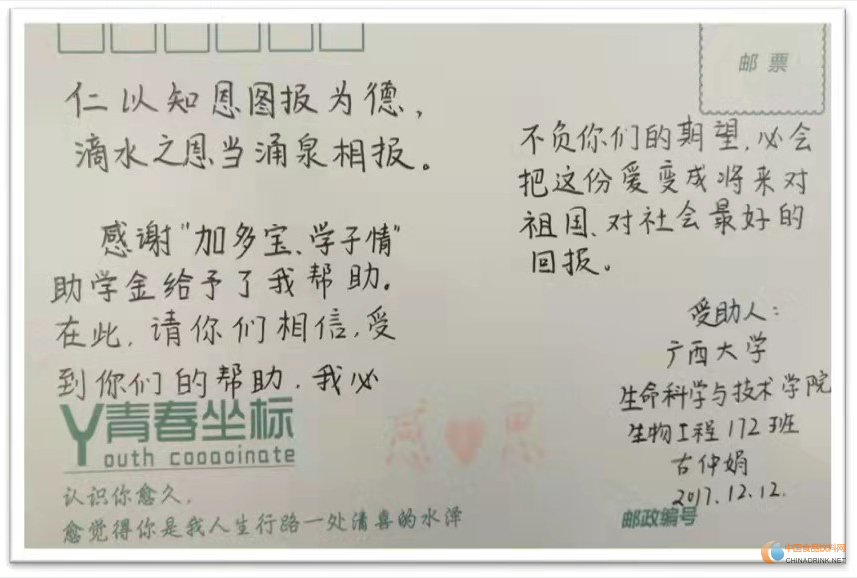 仁以知恩图报为德，
滴水之恩当涌泉相报。
感谢“加多宝、学子情”
助学金给予了我帮助。
在此，请你们相信，受
到你们的帮助，我必
青春坐标
Youth cooooinate
认识你愈久，
愈觉得你是我人生行路一处清喜的水泽
邮票
不负你们的期望，必会
把这份爱变成将来对
祖国、对社会最好的
回报。
受助人：
广西大学
生命科学与技术学院
生物工程172班
古仲娟
2017.12.12.
感恩
邮政编号
中国食品饮料网
CHINADRINK.NET